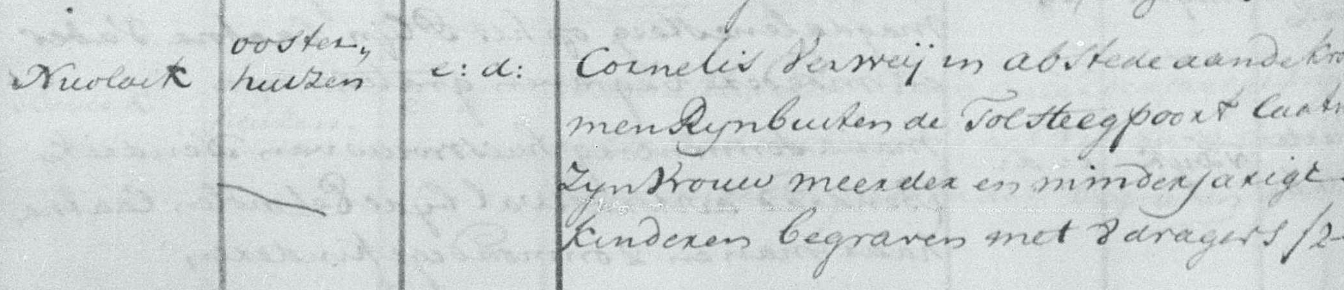 Nicolaik
ooster„
huizen
e: d:
Cornelis Verweij in abstede aande kro
men Rijn buiten de Tolsteegpoort Laat
Zyn Vrouw meerder en minderjarige
kinderen begraven met 8 dragers /2-